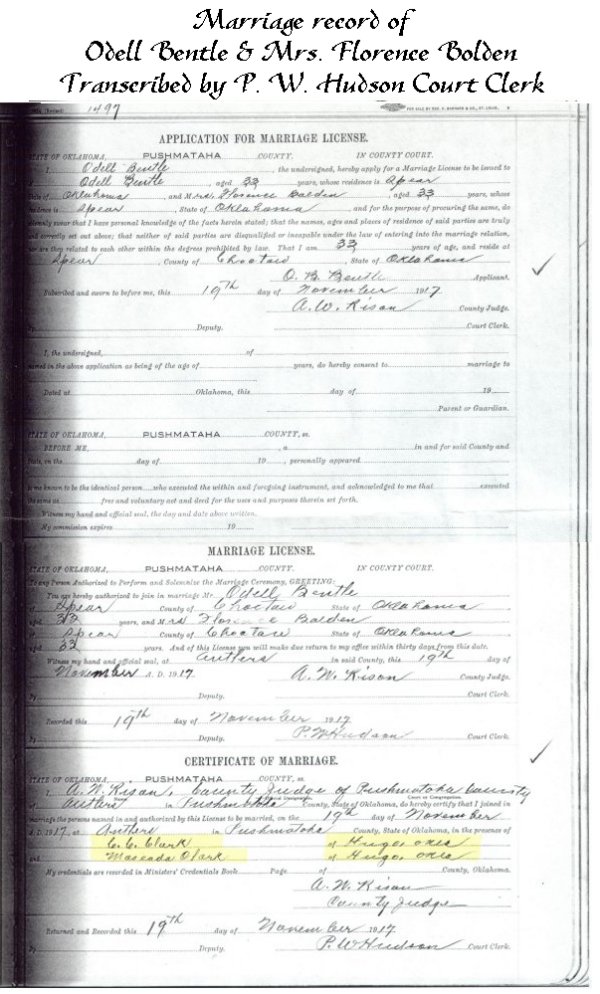 Marriage record of
Odell Bentle & Mrs. Florence Bolden
Transcribed by P. W. Hudson Court Clerk
1497
APPLICATION FOR MARRIAGE LICENSE.
STATE OF OKLAHOMA, PUSHMATAHA COUNTY. IN COUNTY COURT.
I, Odell Bentle, the undersigned, hereby apply for a Marriage License to be issued to
Odell Bentle, aged 33 years, whose residence is Spear
State of Oklahoma, and Mrs. Florence Balden, aged 33 years, whose
residence is Spear, State of Oklahoma, and for the purpose of procuring the same, do
solemnly swear that I have personal knowledge of the facts herein stated; that the names, ages and places of residence of said parties are truly
and correctly set out above; that neither of said parties are disqualified or incapable under the law of entering into the marriage relation,
nor are they related to each other within the degrees prohibited by law. That I am 33 years of age, and reside at
Spear, County of Choctaw State of Oklahoma
O. B. Bentle Applicant.
Subscribed and sworn to before me, this 19th day of November 1917
A. W. Rison County Judge.
By Deputy. Court Clerk.
I, the undersigned, of
named in the above application as being of the age of years, do hereby consent to marriage to
Dated at Oklahoma, this day of 19
Parent or Guardian.
STATE OF OKLAHOMA, PUSHMATAHA COUNTY, ss.
BEFORE ME, a in and for said County and
State, on the day of 19 , personally appeared
to me known to be the identical person who executed the within and foregoing instrument, and acknowledged to me that executed
the same as free and voluntary act and deed for the uses and purposes therein set forth.
Witness my hand and official seal, the day and date above written.
My commission expires 19
MARRIAGE LICENSE.
STATE OF OKLAHOMA, PUSHMATAHA COUNTY. IN COUNTY COURT.
To any Person Authorized to Perform and Solemnize the Marriage Ceremony, GREETING:
You are hereby authorized to join in marriage Mr. Odell Bentle
of Spear County of Choctaw State of Oklahoma
aged 33 years, and Mrs Florence Balden
of Spear County of Choctaw State of Oklahoma
aged 33 years. And of this License you will make due return to my office within thirty days from this date.
Witness my hand and official seal, at Antlers in said County, this 19th day of
November A. D. 1917. A. W. Rison County Judge.
By Deputy. Court Clerk.
Recorded this 19th day of November 1917
By Deputy. P. W Hudson Court Clerk.
CERTIFICATE OF MARRIAGE.
STATE OF OKLAHOMA, PUSHMATAHA COUNTY, ss.
I, A. W. Rison, County Judge of Pushmatoha County
of Antlers in Pushmatoha County, State of Oklahoma, do hereby certify that I joined in
marriage the persons named in and authorized by this License to be married, on the 19th day of November
A. D. 1917, at Antlers in Pushmatoha County, State of Oklahoma, in the presence of
C. C. Clark of Hugo, Okla
and Maseada Clark of Hugo, Okla
My credentials are recorded in Ministers' Credentials Book Page of County, Oklahoma.
A. W. Rison
County Judge
Returned and Recorded this 19th day of November 1917.
By Deputy. P. W Hudson Court Clerk.